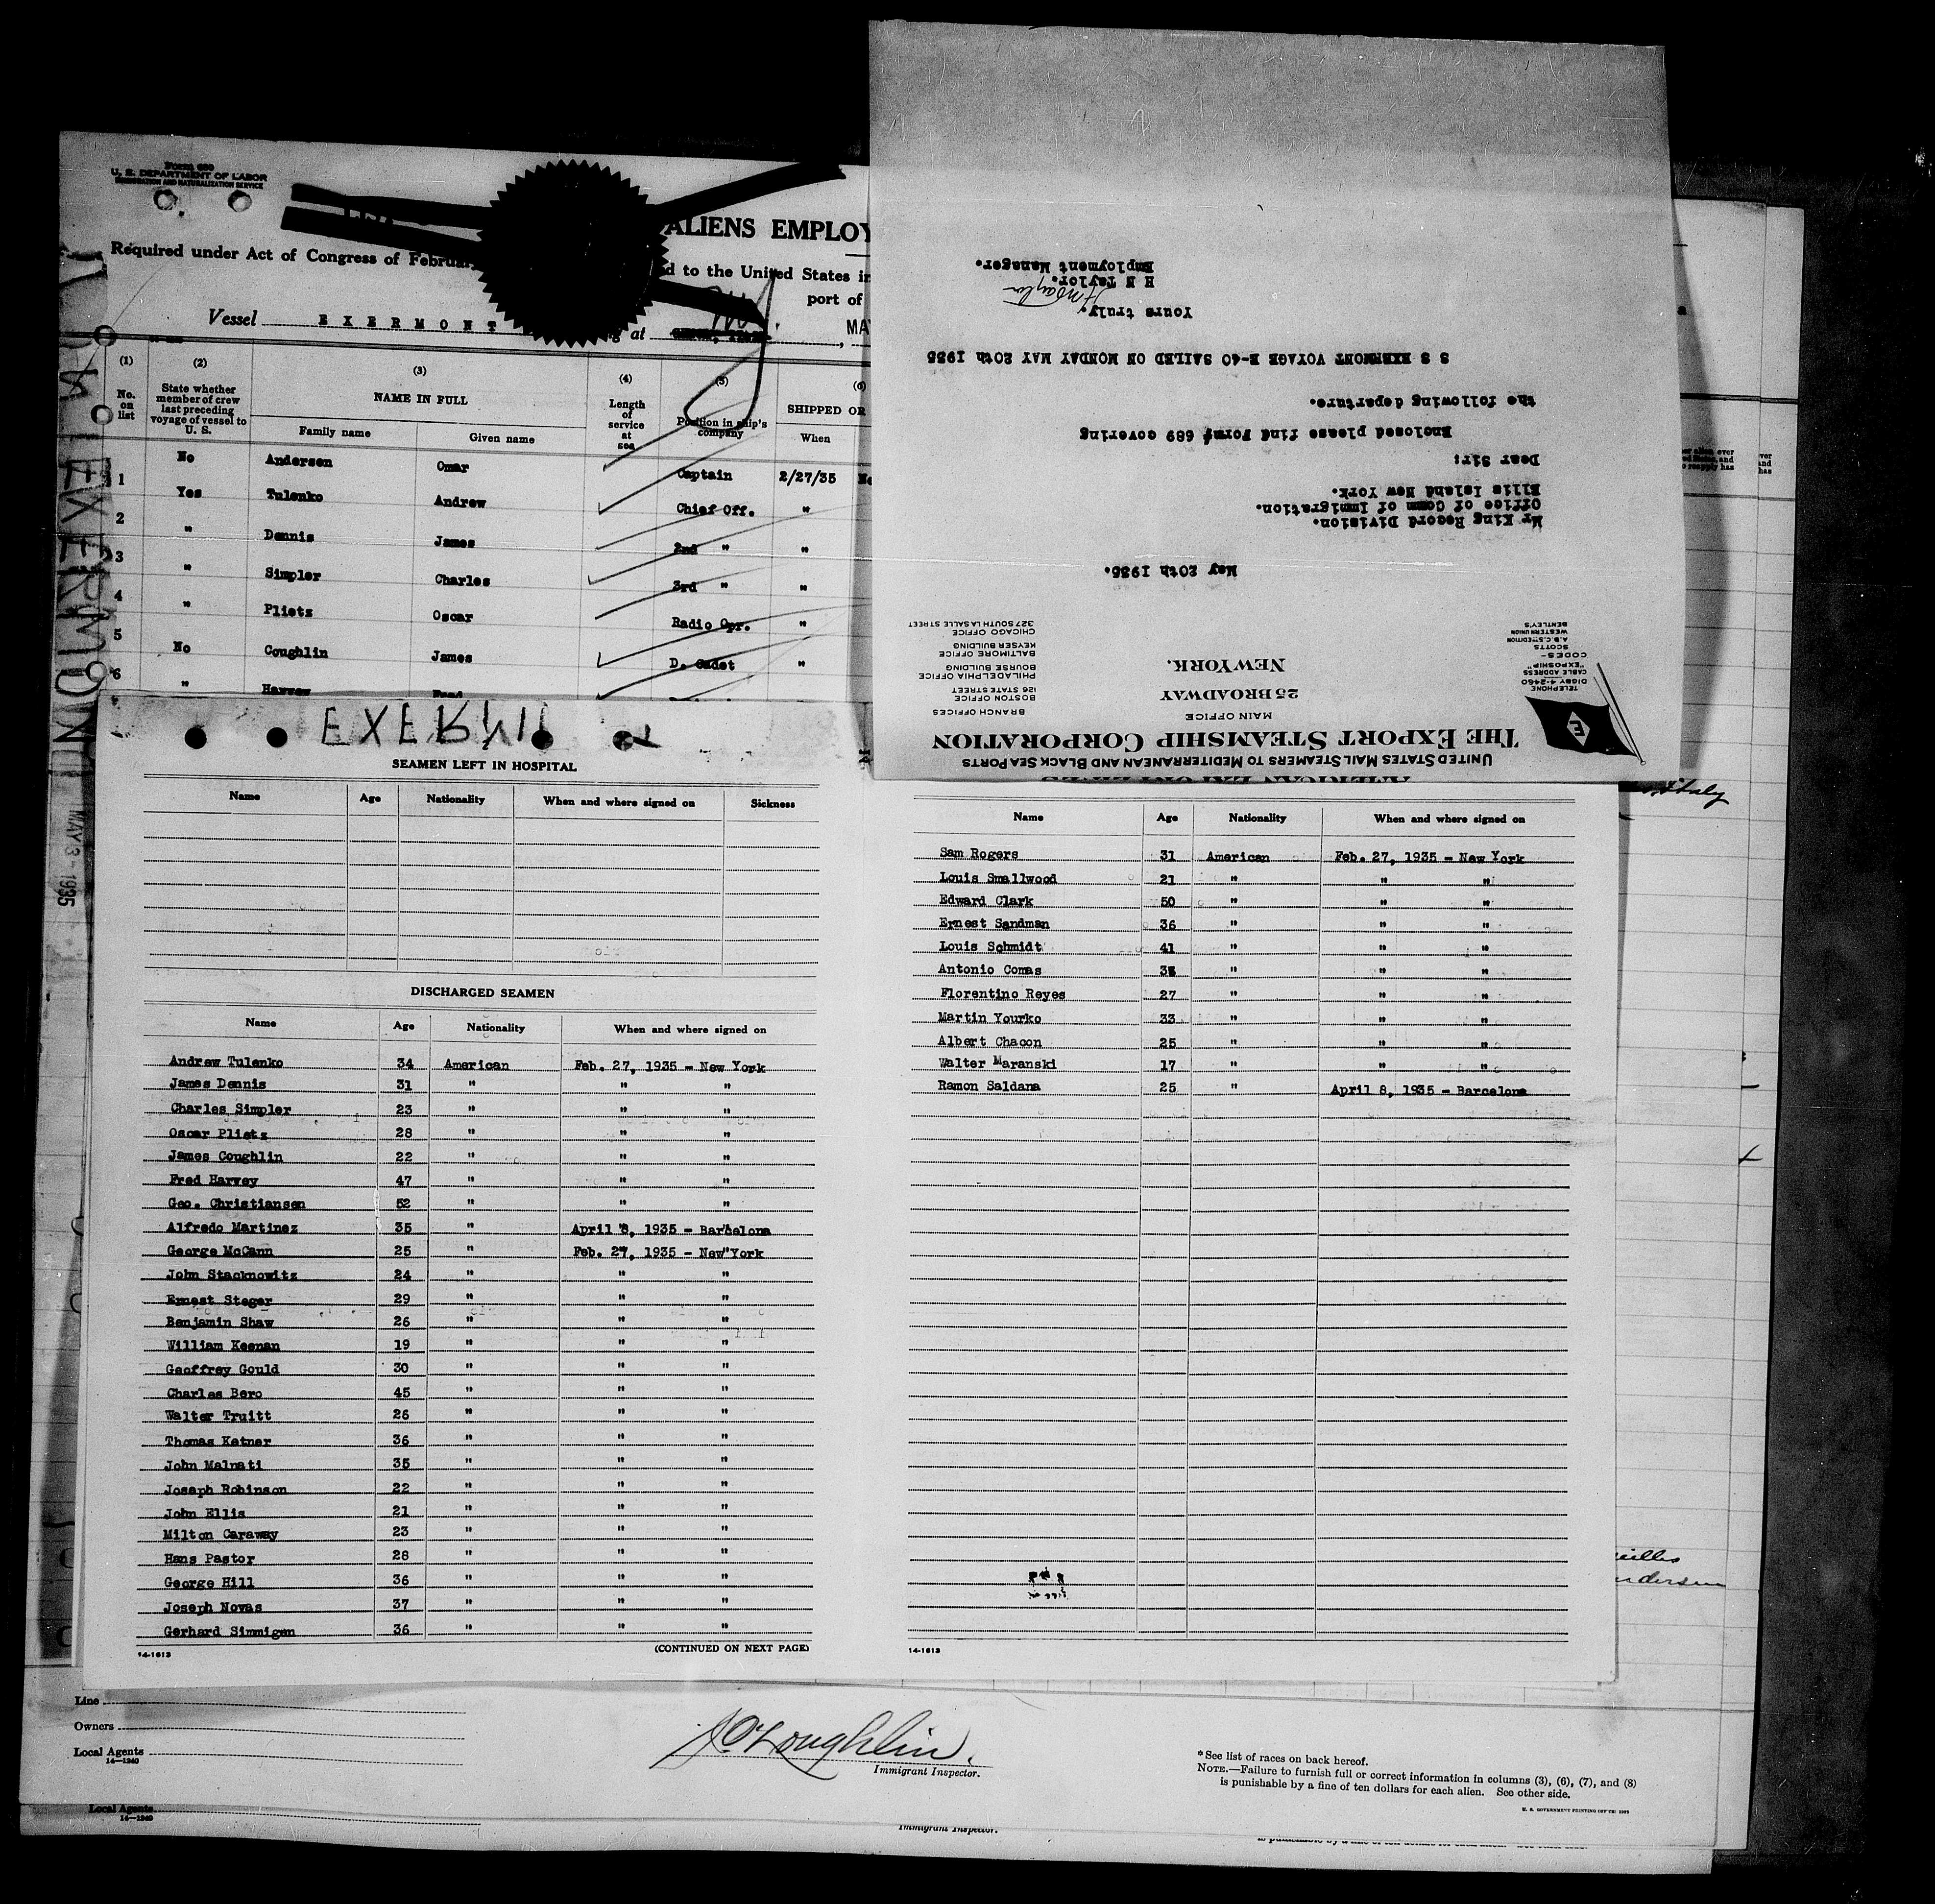 Form 680
U. S. DEPARTMENT OF LABOR
IMMIGRATION AND NATURALIZATION SERVICE
ALIENS EMPLOY
Required under Act of Congress of February
d to the United States in
port of
Vessel EXERMONT
g at
MA
(1) (2) (3) (4) (5) (6)
No. on list
State whether member of crew last preceding voyage of vessel to U. S.
NAME IN FULL
Family name Given name
Length of service at sea
Position in ship's company
SHIPPED OR
When
1 No Andersen Omar Captain 2/27/35
2 Yes Tulenko Andrew Chief Off. "
3 " Dennis James 2nd " "
4 " Simpler Charles 3rd " "
5 " Plietz Oscar Radio Opr. "
6 No Coughlin James D. Cadet "
" Harvey Fred
EXERMONT
MAY 3 - 1935
UNITED STATES MAIL STEAMERS TO MEDITERRANEAN AND BLACK SEA PORTS
THE EXPORT STEAMSHIP CORPORATION
E
MAIN OFFICE
25 BROADWAY
NEW YORK.
TELEPHONE
DIGBY 4-2460
CABLE ADDRESS
"EXPOSHIP"
-CODES-
SCOTTS
A.B.C. 5TH EDITION
WESTERN UNION
BENTLEY'S
BRANCH OFFICES
BOSTON OFFICE
126 STATE STREET
PHILADELPHIA OFFICE
BOURSE BUILDING
BALTIMORE OFFICE
KEYSER BUILDING
CHICAGO OFFICE
327 SOUTH LA SALLE STREET
May 20th 1935.
Mr King Record Division.
Office of Comm of Immigration.
Ellis Island New York.
Dear Sir:
Enclosed please find Form 689 covering
the following departure.
S S EXERMONT VOYAGE E-40 SAILED ON MONDAY MAY 20th 1935
Yours truly.
H M Taylor
H M Taylor.
Employment Manager.
SEAMEN LEFT IN HOSPITAL
Name Age Nationality When and where signed on Sickness
DISCHARGED SEAMEN
Name Age Nationality When and where signed on
Andrew Tulenko 34 American Feb. 27, 1935 - New York
James Dennis 31 " " "
Charles Simpler 23 " " "
Oscar Plietz 28 " " "
James Coughlin 22 " " "
Fred Harvey 47 " " "
Geo. Christiansen 52 " " "
Alfredo Martinez 35 " April 8, 1935 - Barcelona
George McCann 25 " Feb. 27, 1935 - New York
John Stacknowitz 24 " " "
Ernest Steger 29 " " "
Benjamin Shaw 26 " " "
William Keenan 19 " " "
Geoffrey Gould 30 " " "
Charles Bero 45 " " "
Walter Truitt 26 " " "
Thomas Ketner 36 " " "
John Malnati 35 " " "
Joseph Robinson 22 " " "
John Ellis 21 " " "
Milton Caraway 23 " " "
Hans Pastor 28 " " "
George Hill 36 " " "
Joseph Novas 37 " " "
Gerhard Simmigen 36 " " "
14-1613 (CONTINUED ON NEXT PAGE)
Name Age Nationality When and where signed on
Sam Rogers 31 American Feb. 27, 1935 - New York
Louis Smallwood 21 " " "
Edward Clark 50 " " "
Ernest Sandman 36 " " "
Louis Schmidt 41 " " "
Antonio Comas " " "
Florentino Reyes 27 " " "
Martin Yourko 33 " " "
Albert Chacon 25 " " "
Walter Maranski 17 " " "
Ramon Saldana 25 " April 8, 1935 - Barcelona
14-1613
Line
Owners
Local Agents
14-1240
Immigrant Inspector.
*See list of races on back hereof.
NOTE.—Failure to furnish full or correct information in columns (3), (6), (7), and (8)
is punishable by a fine of ten dollars for each alien. See other side.
Local Agents
14-1240
Immigrant Inspector.